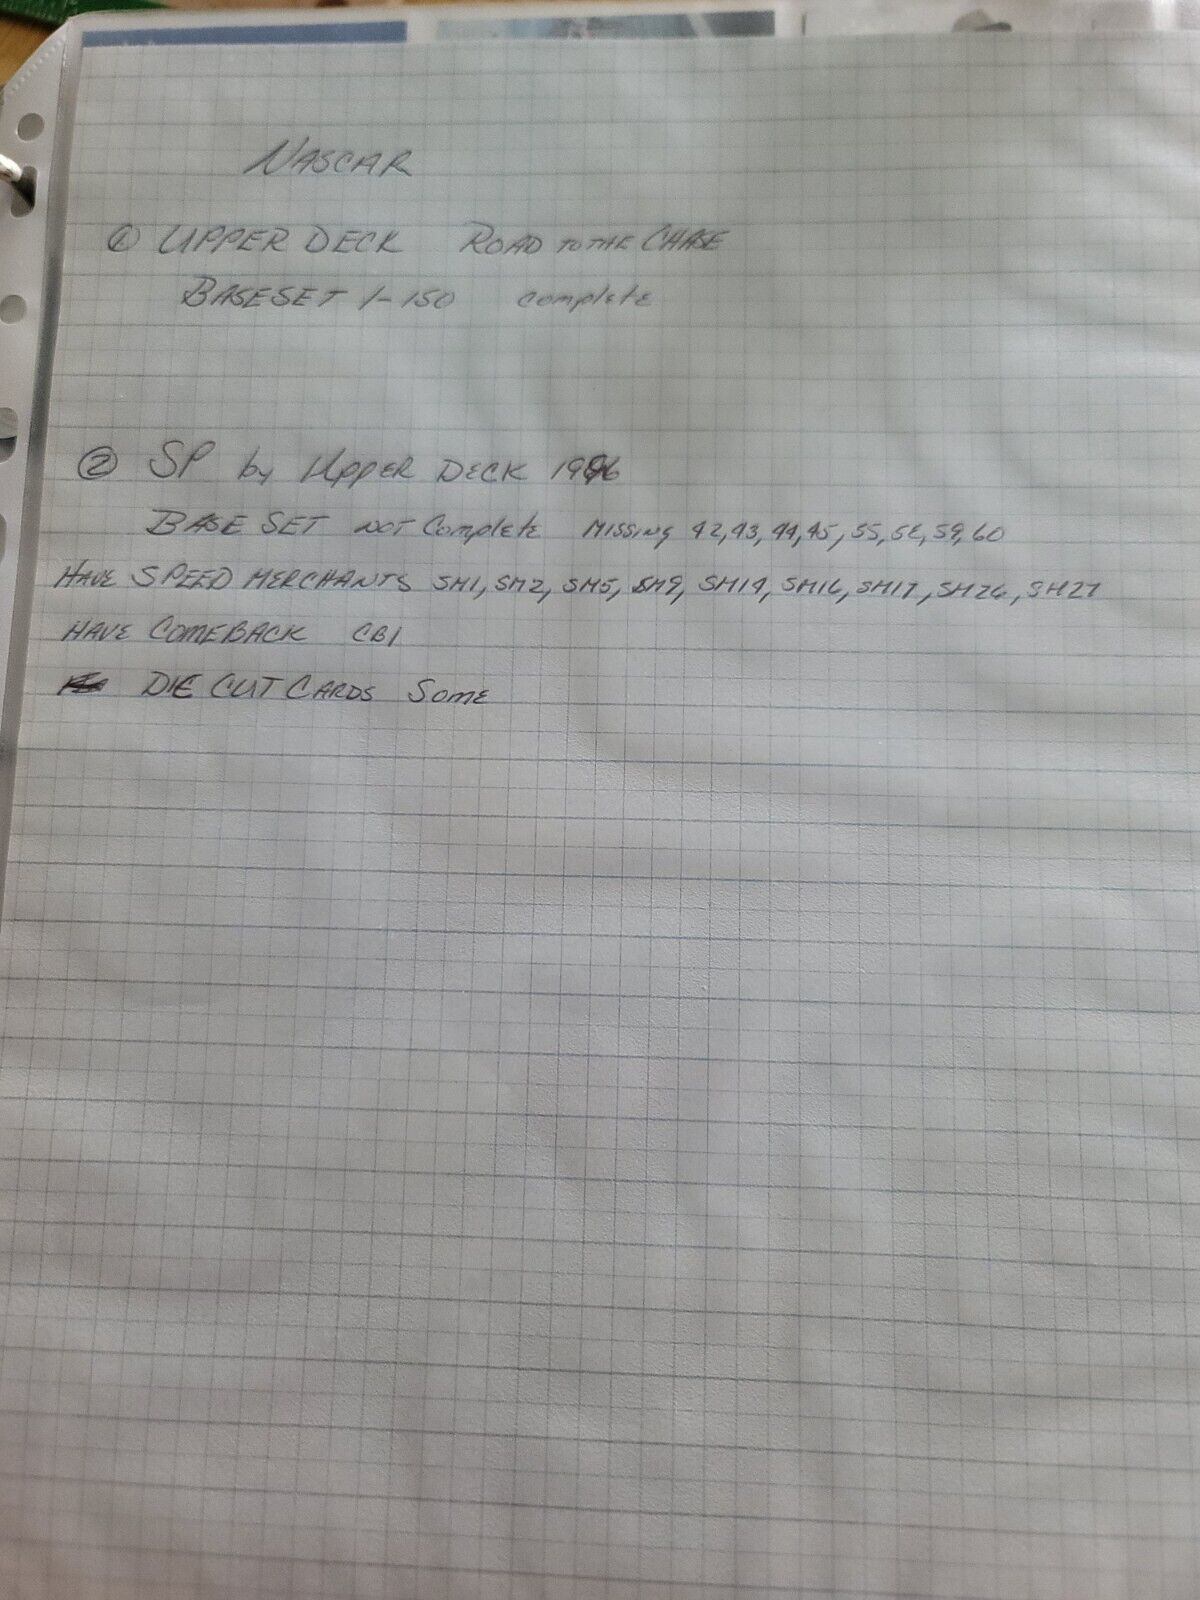 NASCAR
① UPPER DECK ROAD TO THE CHASE
BASE SET 1-150 complete
② SP by UPPER DECK 1996
BASE SET NOT Complete MISSING 42,43,44,45,55,56,59,60
HAVE SPEED MERCHANTS SM1, SM2, SM5, SM9, SM14, SM16, SM17, SM26, SM27
HAVE COMEBACK CB1
DIE CUT CARDS SOME